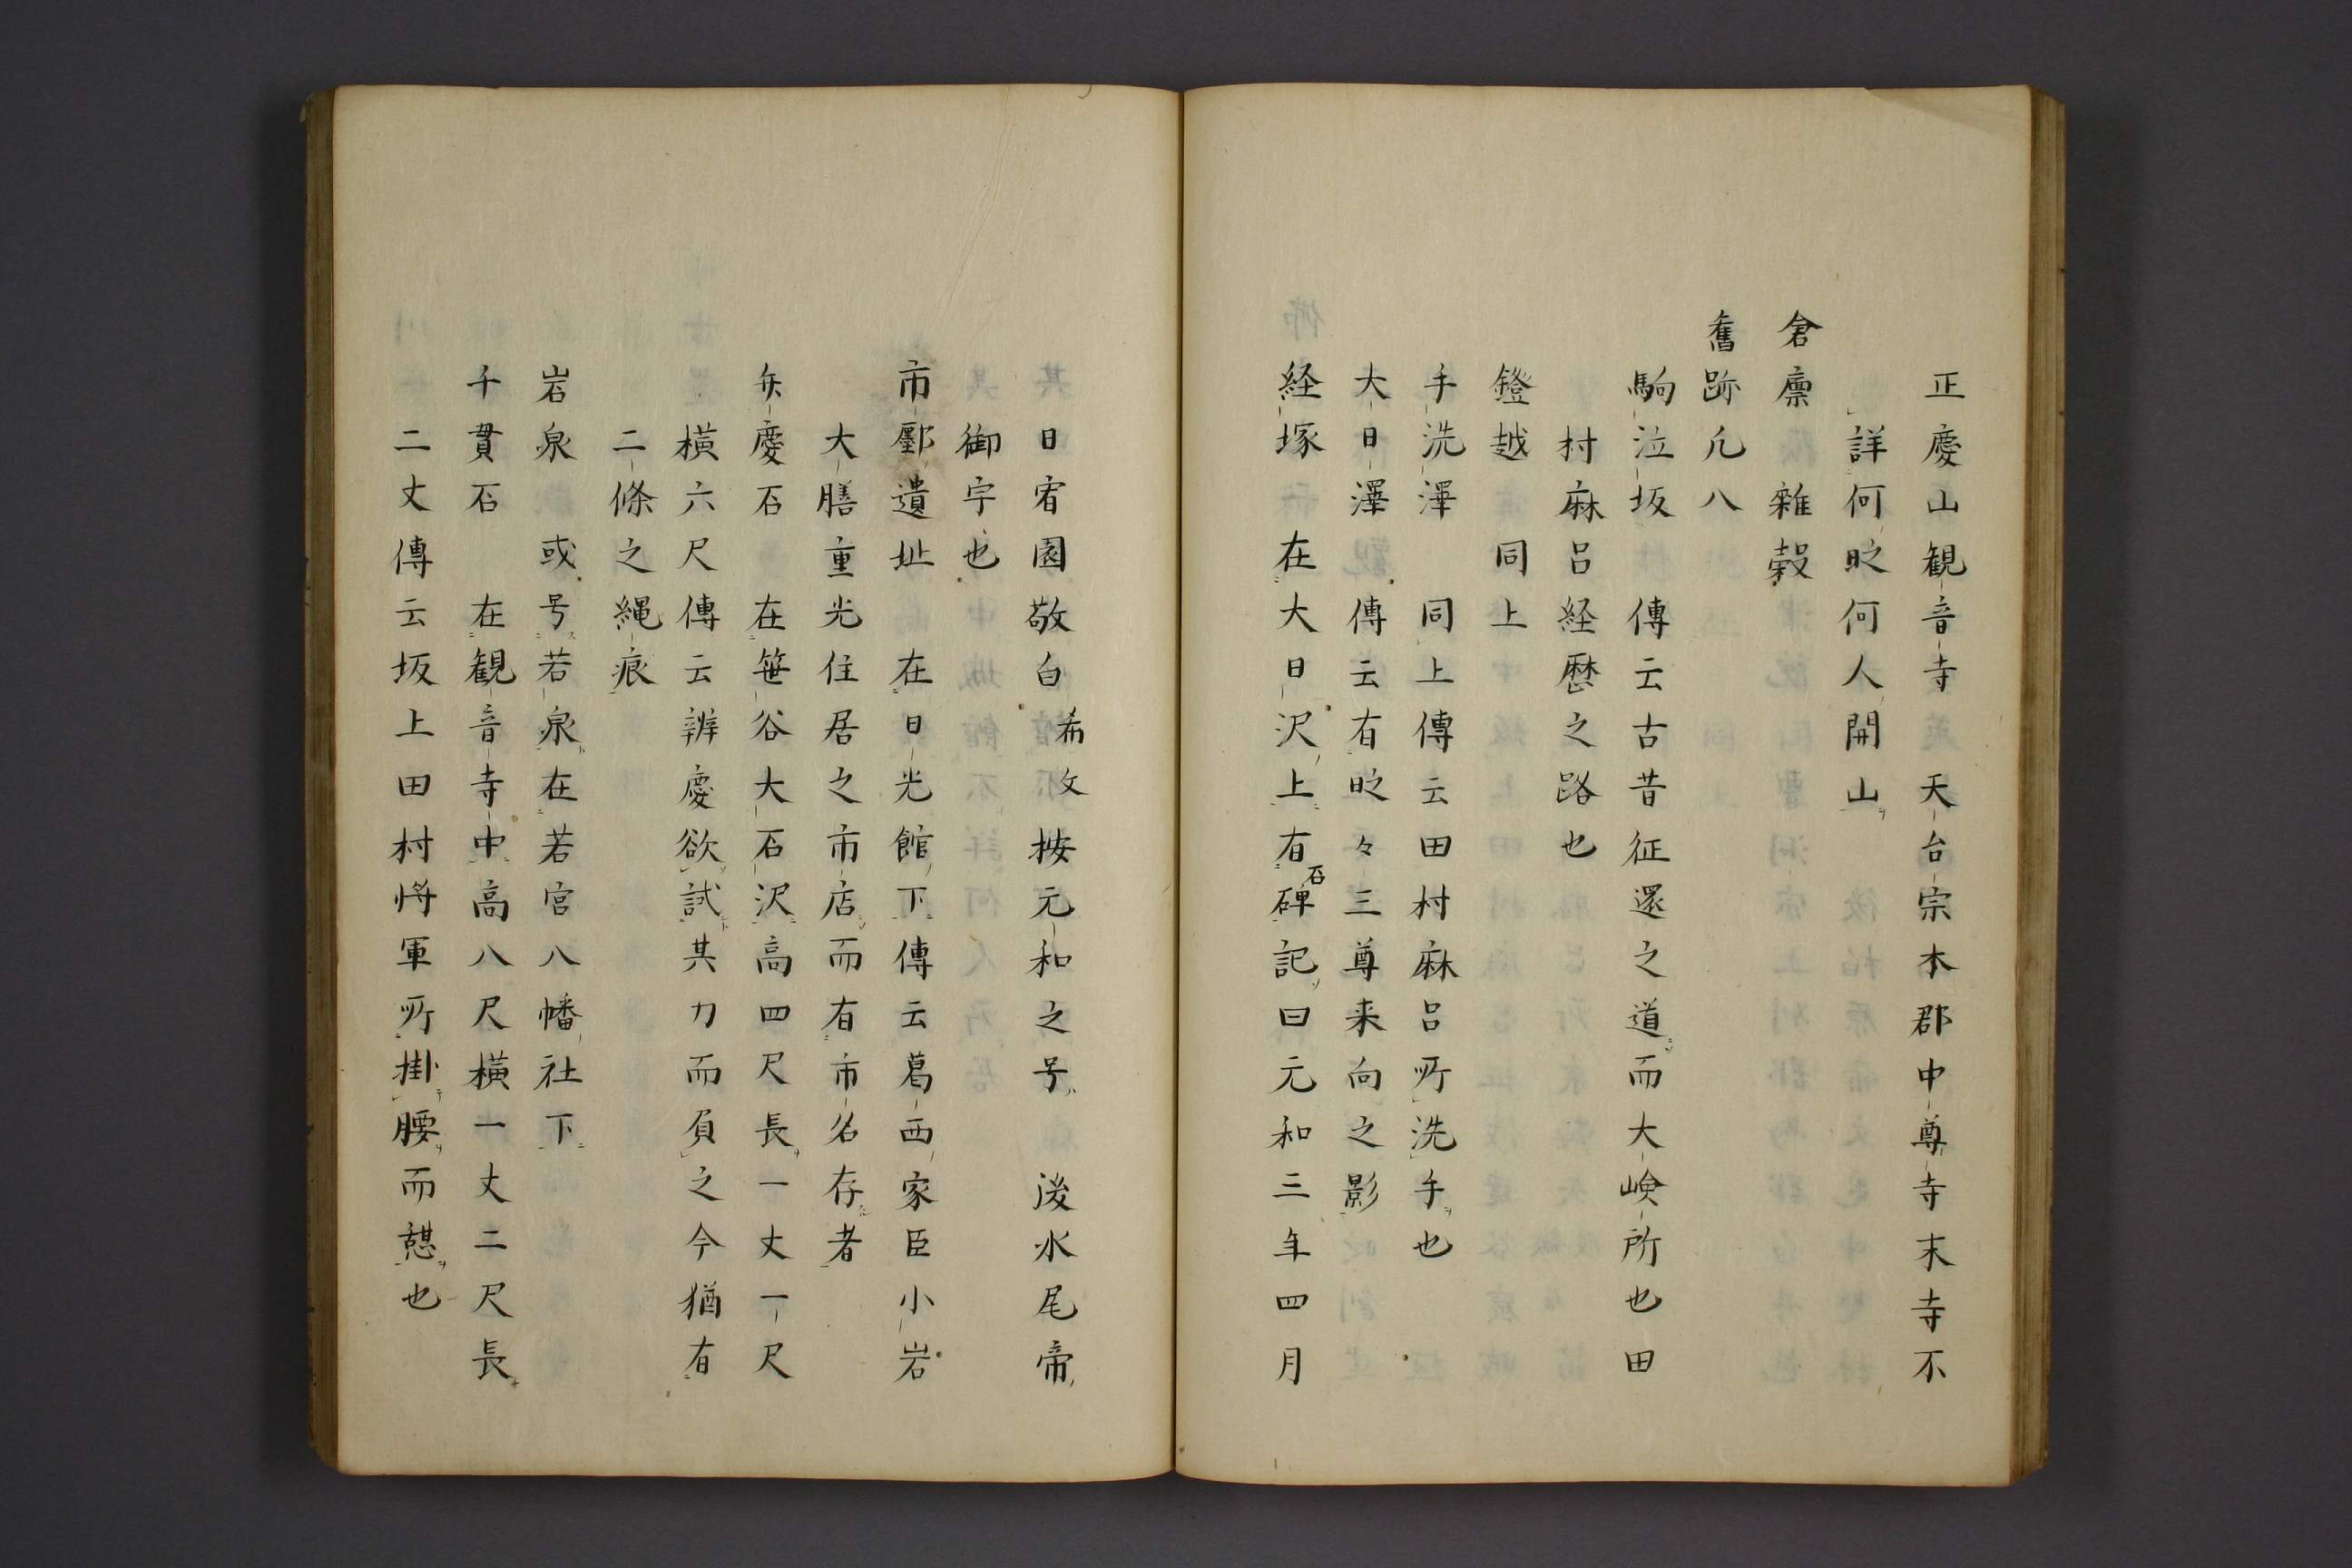 正慶山観音寺　天台宗本郡中尊寺末寺不
詳何時何人開山
倉廩　雑穀
舊跡凡八
駒泣坂　傳云古昔征還之道而大嶮所也田
村麻呂経歴之路也
鐙越　同上
手洗澤　同上傳云田村麻呂所洗手也
大日澤　傳云有時々三尊来向之影
経塚　在大日沢上有石碑記曰元和三年四月
日宥園敬白　希文　按元和之号　後水尾帝
御宇也
市鄽遺址　在日光館下傳云葛西家臣小岩
大膳重光住居之市店而有市名存者
弁慶石　在笹谷大石沢高四尺長一丈一尺
横六尺傳云辨慶欲試其力而負之今猶有
二條之縄痕
岩泉　或号若泉在若宮八幡社下
千貫石　在観音寺中高八尺横一丈二尺長
二丈傳云坂上田村将軍所掛腰而憇也